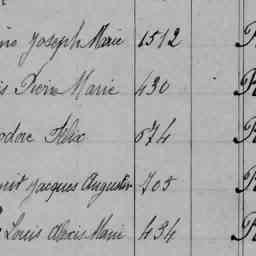 Joseph Marie 1512
Pierre Marie 430
Félix 674
Jacques Auguste 705
Louis Alexis Marie 434